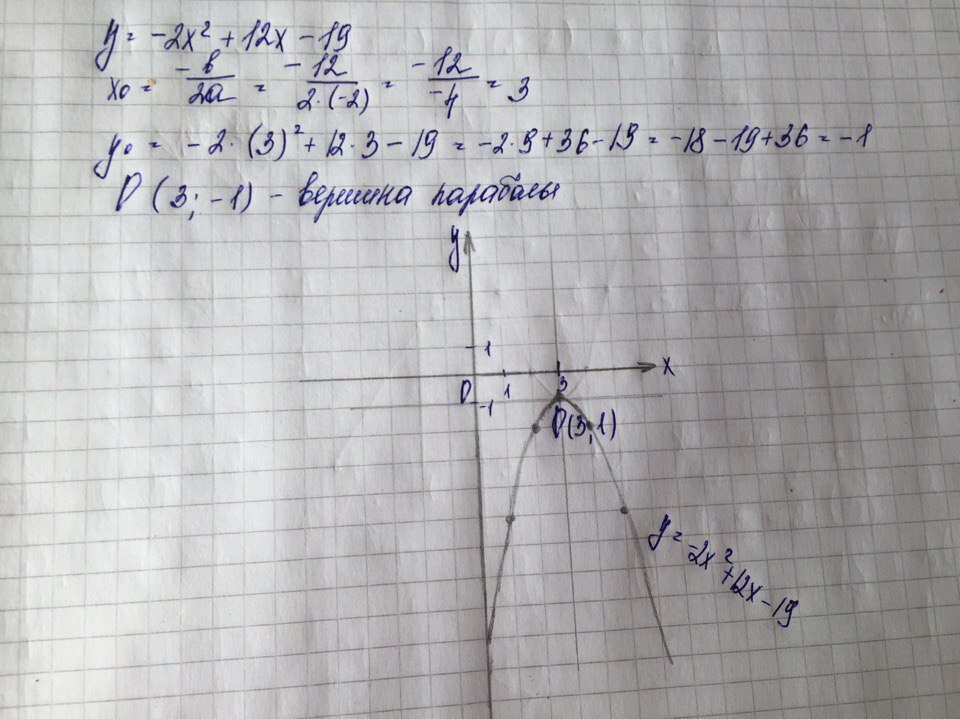 y = -2x² + 12x - 19
x₀ = -b/2a = -12/2·(-2) = -12/-4 = 3
y₀ = -2·(3)² + 12·3 - 19 = -2·9 + 36 - 19 = -18 - 19 + 36 = -1
D (3; -1) - вершина параболы
y
1
x
0
1
3
-1
D(3; 1)
y = -2x² + 12x - 19